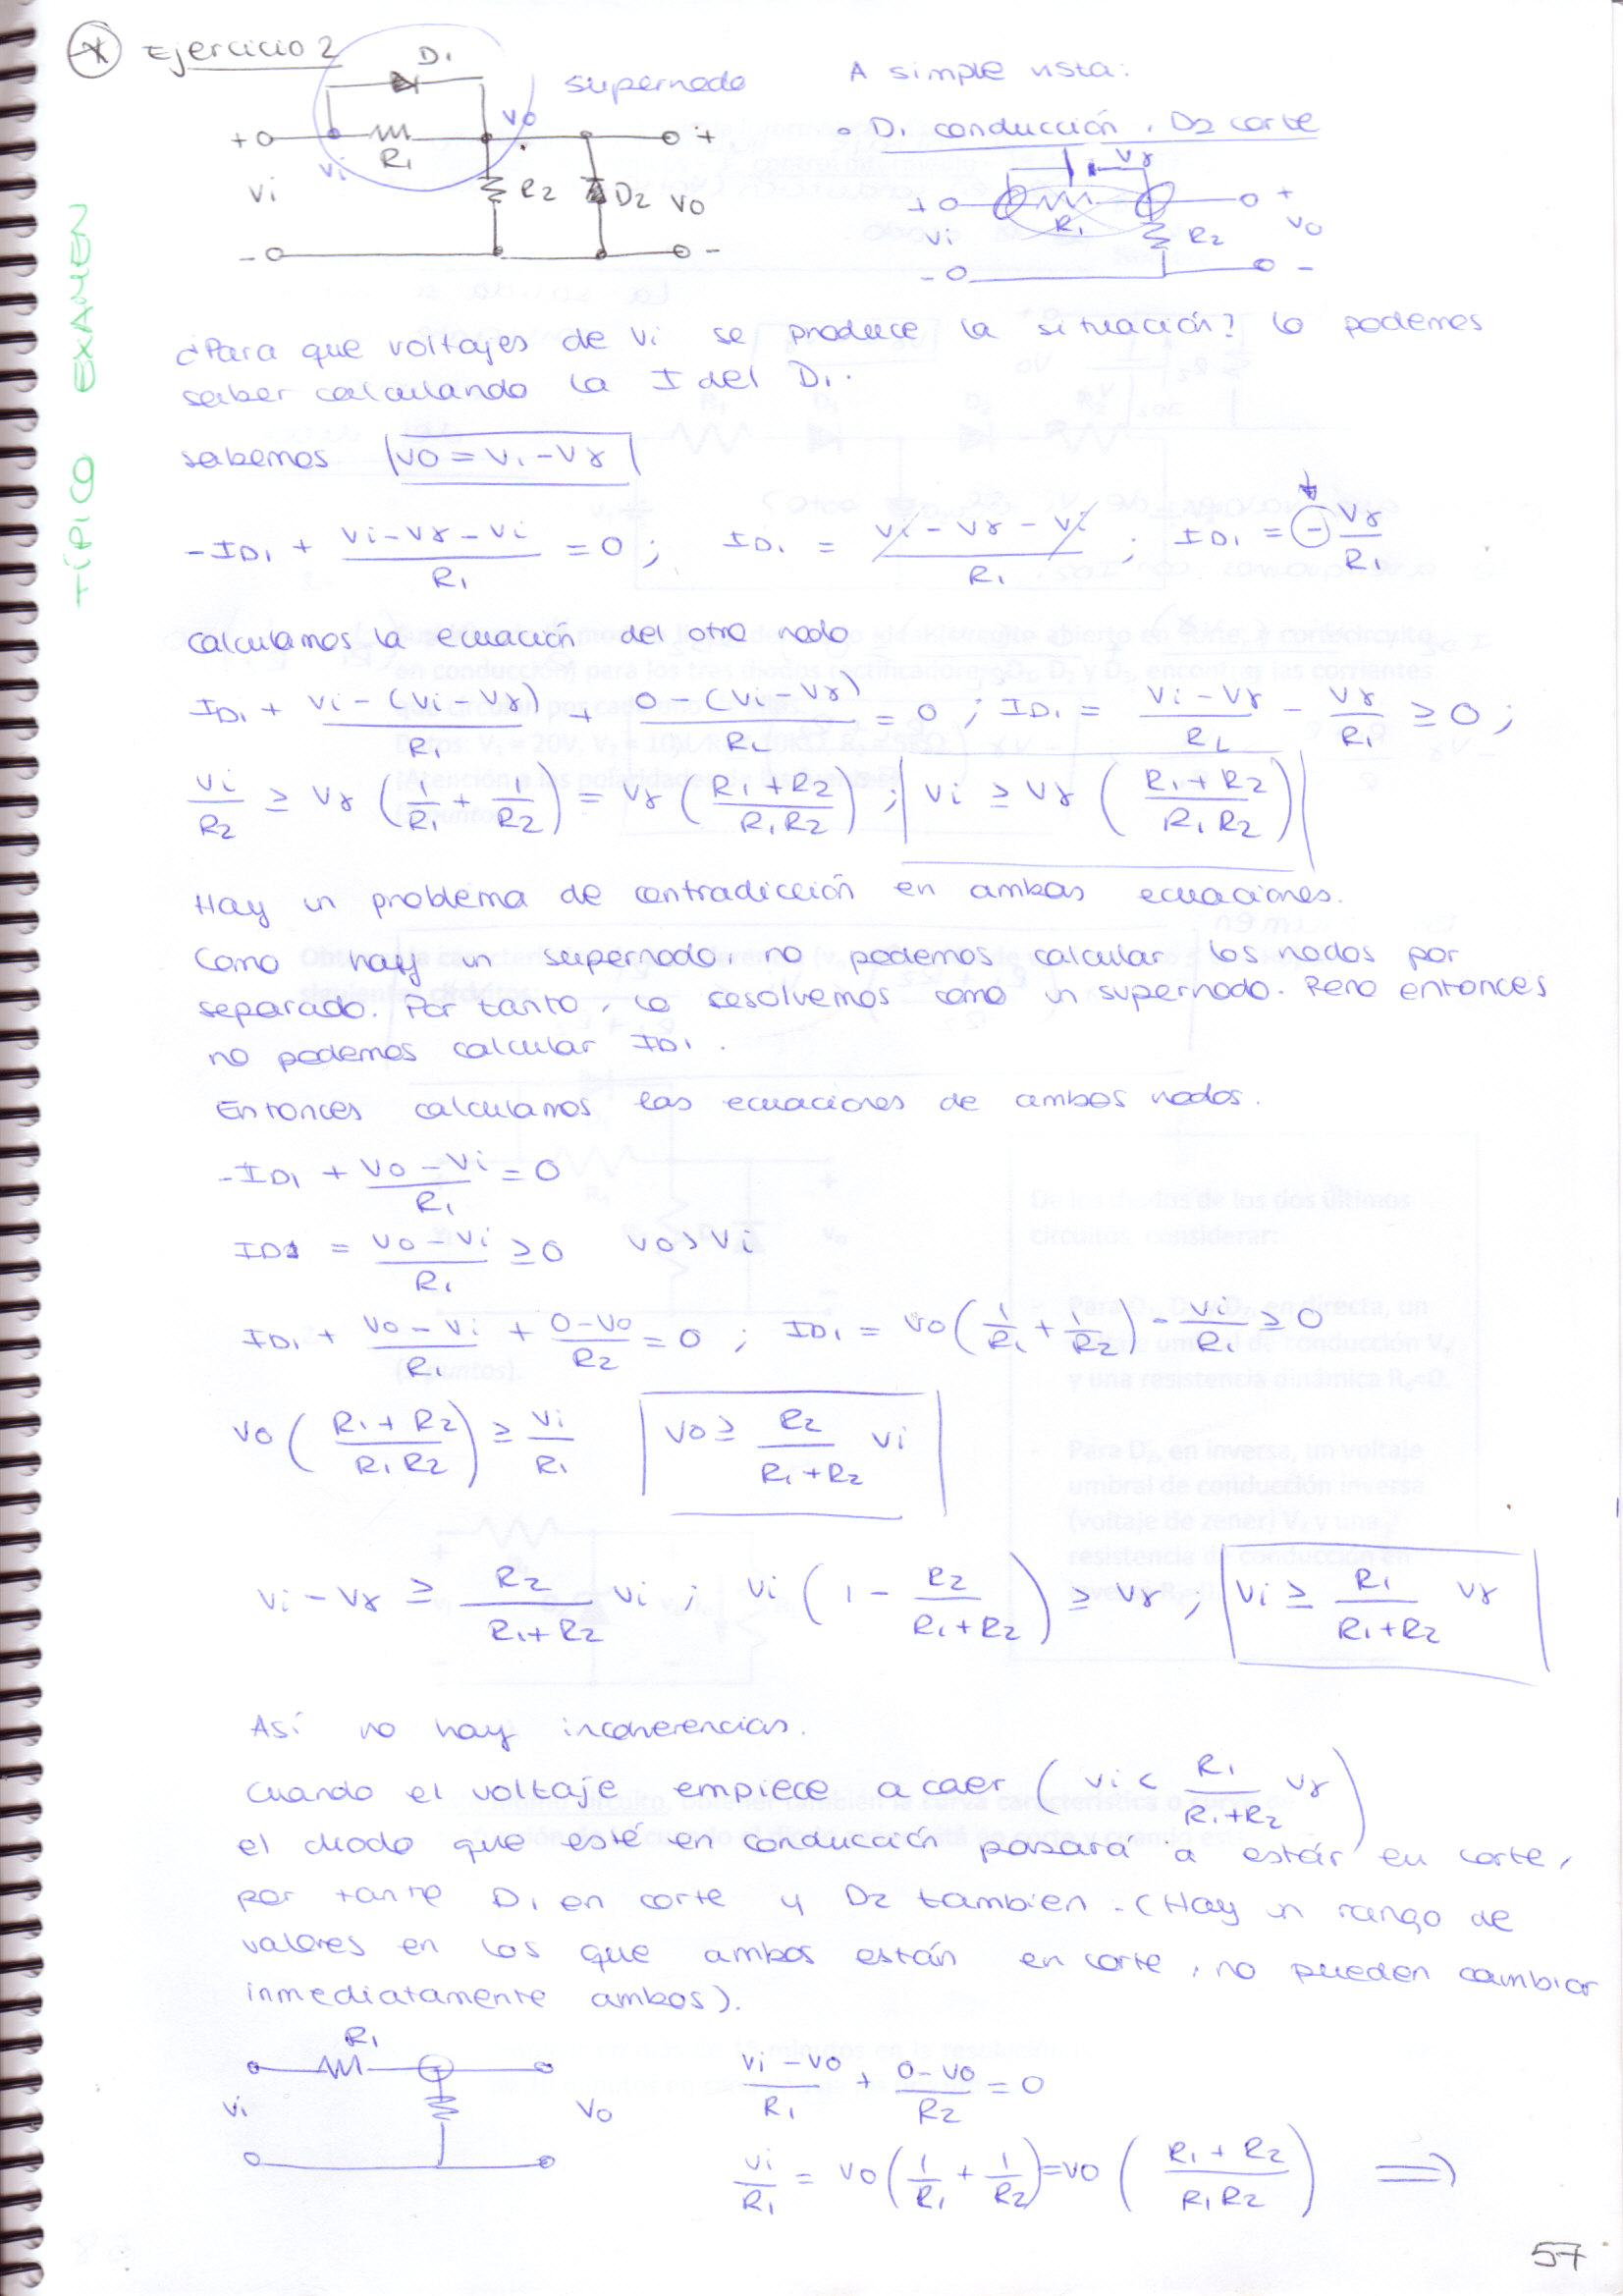 * Ejercicio 2
TÍPICO EXAMEN
D1
supernodo
A simple vista:
• D1 conducción, D2 corte
+ R1 Vi Vo R2 D2 Vo + -
Vi
+ Vi - R1 Vγ R2 + Vo -
¿Para que voltajes de Vi se produce la situación? Lo podemos
saber calculando la I del D1.
sabemos Vo = Vi - Vγ
-ID1 + (Vi - Vγ - Vi)/R1 = 0 ; ID1 = (Vi - Vγ - Vi)/R1 ; ID1 = - Vγ/R1
calculamos la ecuación del otro nodo
ID1 + (Vi - (Vi - Vγ))/R1 + (0 - (Vi - Vγ))/R2 = 0 ; ID1 = (Vi - Vγ)/R2 - Vγ/R1 ≥ 0 ;
Vi/R2 ≥ Vγ (1/R1 + 1/R2) = Vγ ((R1 + R2)/(R1 R2)) ; Vi ≥ Vγ ((R1 + R2)/(R1 R2))
Hay un problema de contradicción en ambas ecuaciones.
Como hay un supernodo, no podemos calcular los nodos por
separado. Por tanto, lo resolvemos como un supernodo. Pero entonces
no podemos calcular ID1.
Entonces calculamos las ecuaciones de ambos nodos.
-ID1 + (Vo - Vi)/R1 = 0
ID1 = (Vo - Vi)/R1 ≥ 0 Vo > Vi
ID1 + (Vo - Vi)/R1 + (0 - Vo)/R2 = 0 ; ID1 = Vo (1/R1 + 1/R2) - Vi/R1 ≥ 0
Vo ((R1 + R2)/(R1 R2)) ≥ Vi/R1 Vo ≥ R2/(R1 + R2) Vi
Vi - Vγ ≥ R2/(R1 + R2) Vi ; Vi (1 - R2/(R1 + R2)) ≥ Vγ ; Vi ≥ R1/(R1 + R2) Vγ
Así no hay incoherencias.
Cuando el voltaje empiece a caer (Vi < R1/(R1 + R2) Vγ)
el diodo que esté en conducción pasará a estár en corte,
por tanto D1 en corte y D2 tambien. (Hay un rango de
valores en los que ambos están en corte, no pueden cambiar
inmediatamente ambos).
R1
Vi Vo
(Vi - Vo)/R1 + (0 - Vo)/R2 = 0
Vi/R1 = Vo (1/R1 + 1/R2) = Vo ((R1 + R2)/(R1 R2)) ⟹
57